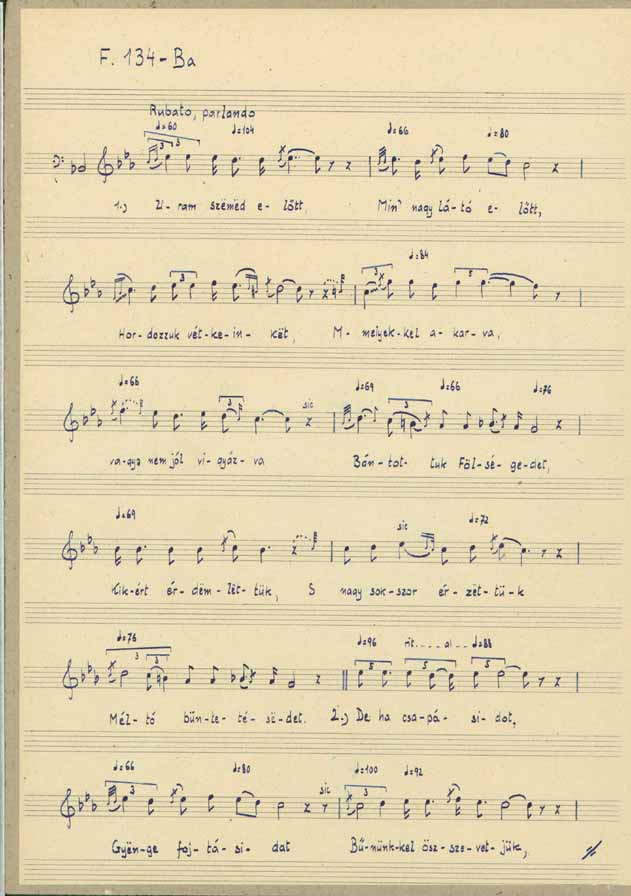 F. 134-Ba
Rubato, parlando
♩=60 ♩=104 ♩=66 ♩=80
3 3
1.) U-ram szëmëd e-lőtt, Min' nagy lá-tó e-lőtt,
♩=84
3 3 5
Hor-dozzuk vét-ke-in-kët, M-melyek-kel a-kar-va,
♩=66 sic ♩=69 ♩=66 ♩=76
3 3
va-gya nem jól vi-gyáz-va Bán-tot-tuk Föl-sé-ge-det,
♩=69 sic ♩=72
Kik-ért ér-dëm-lët-tük, S nagy sok-szor ér-zët-tü-k
♩=76 ♩=96 rit....al... ♩=88
3 3 5 5 5
Mél-tó bün-te-té-si-det. 2.) De ha csa-pá-si-dat,
♩=66 ♩=80 sic ♩=100 ♩=92
3 3
Gyën-ge foj-tá-si-dat Bű-nünk-kel ösz-sze-vet-jük,